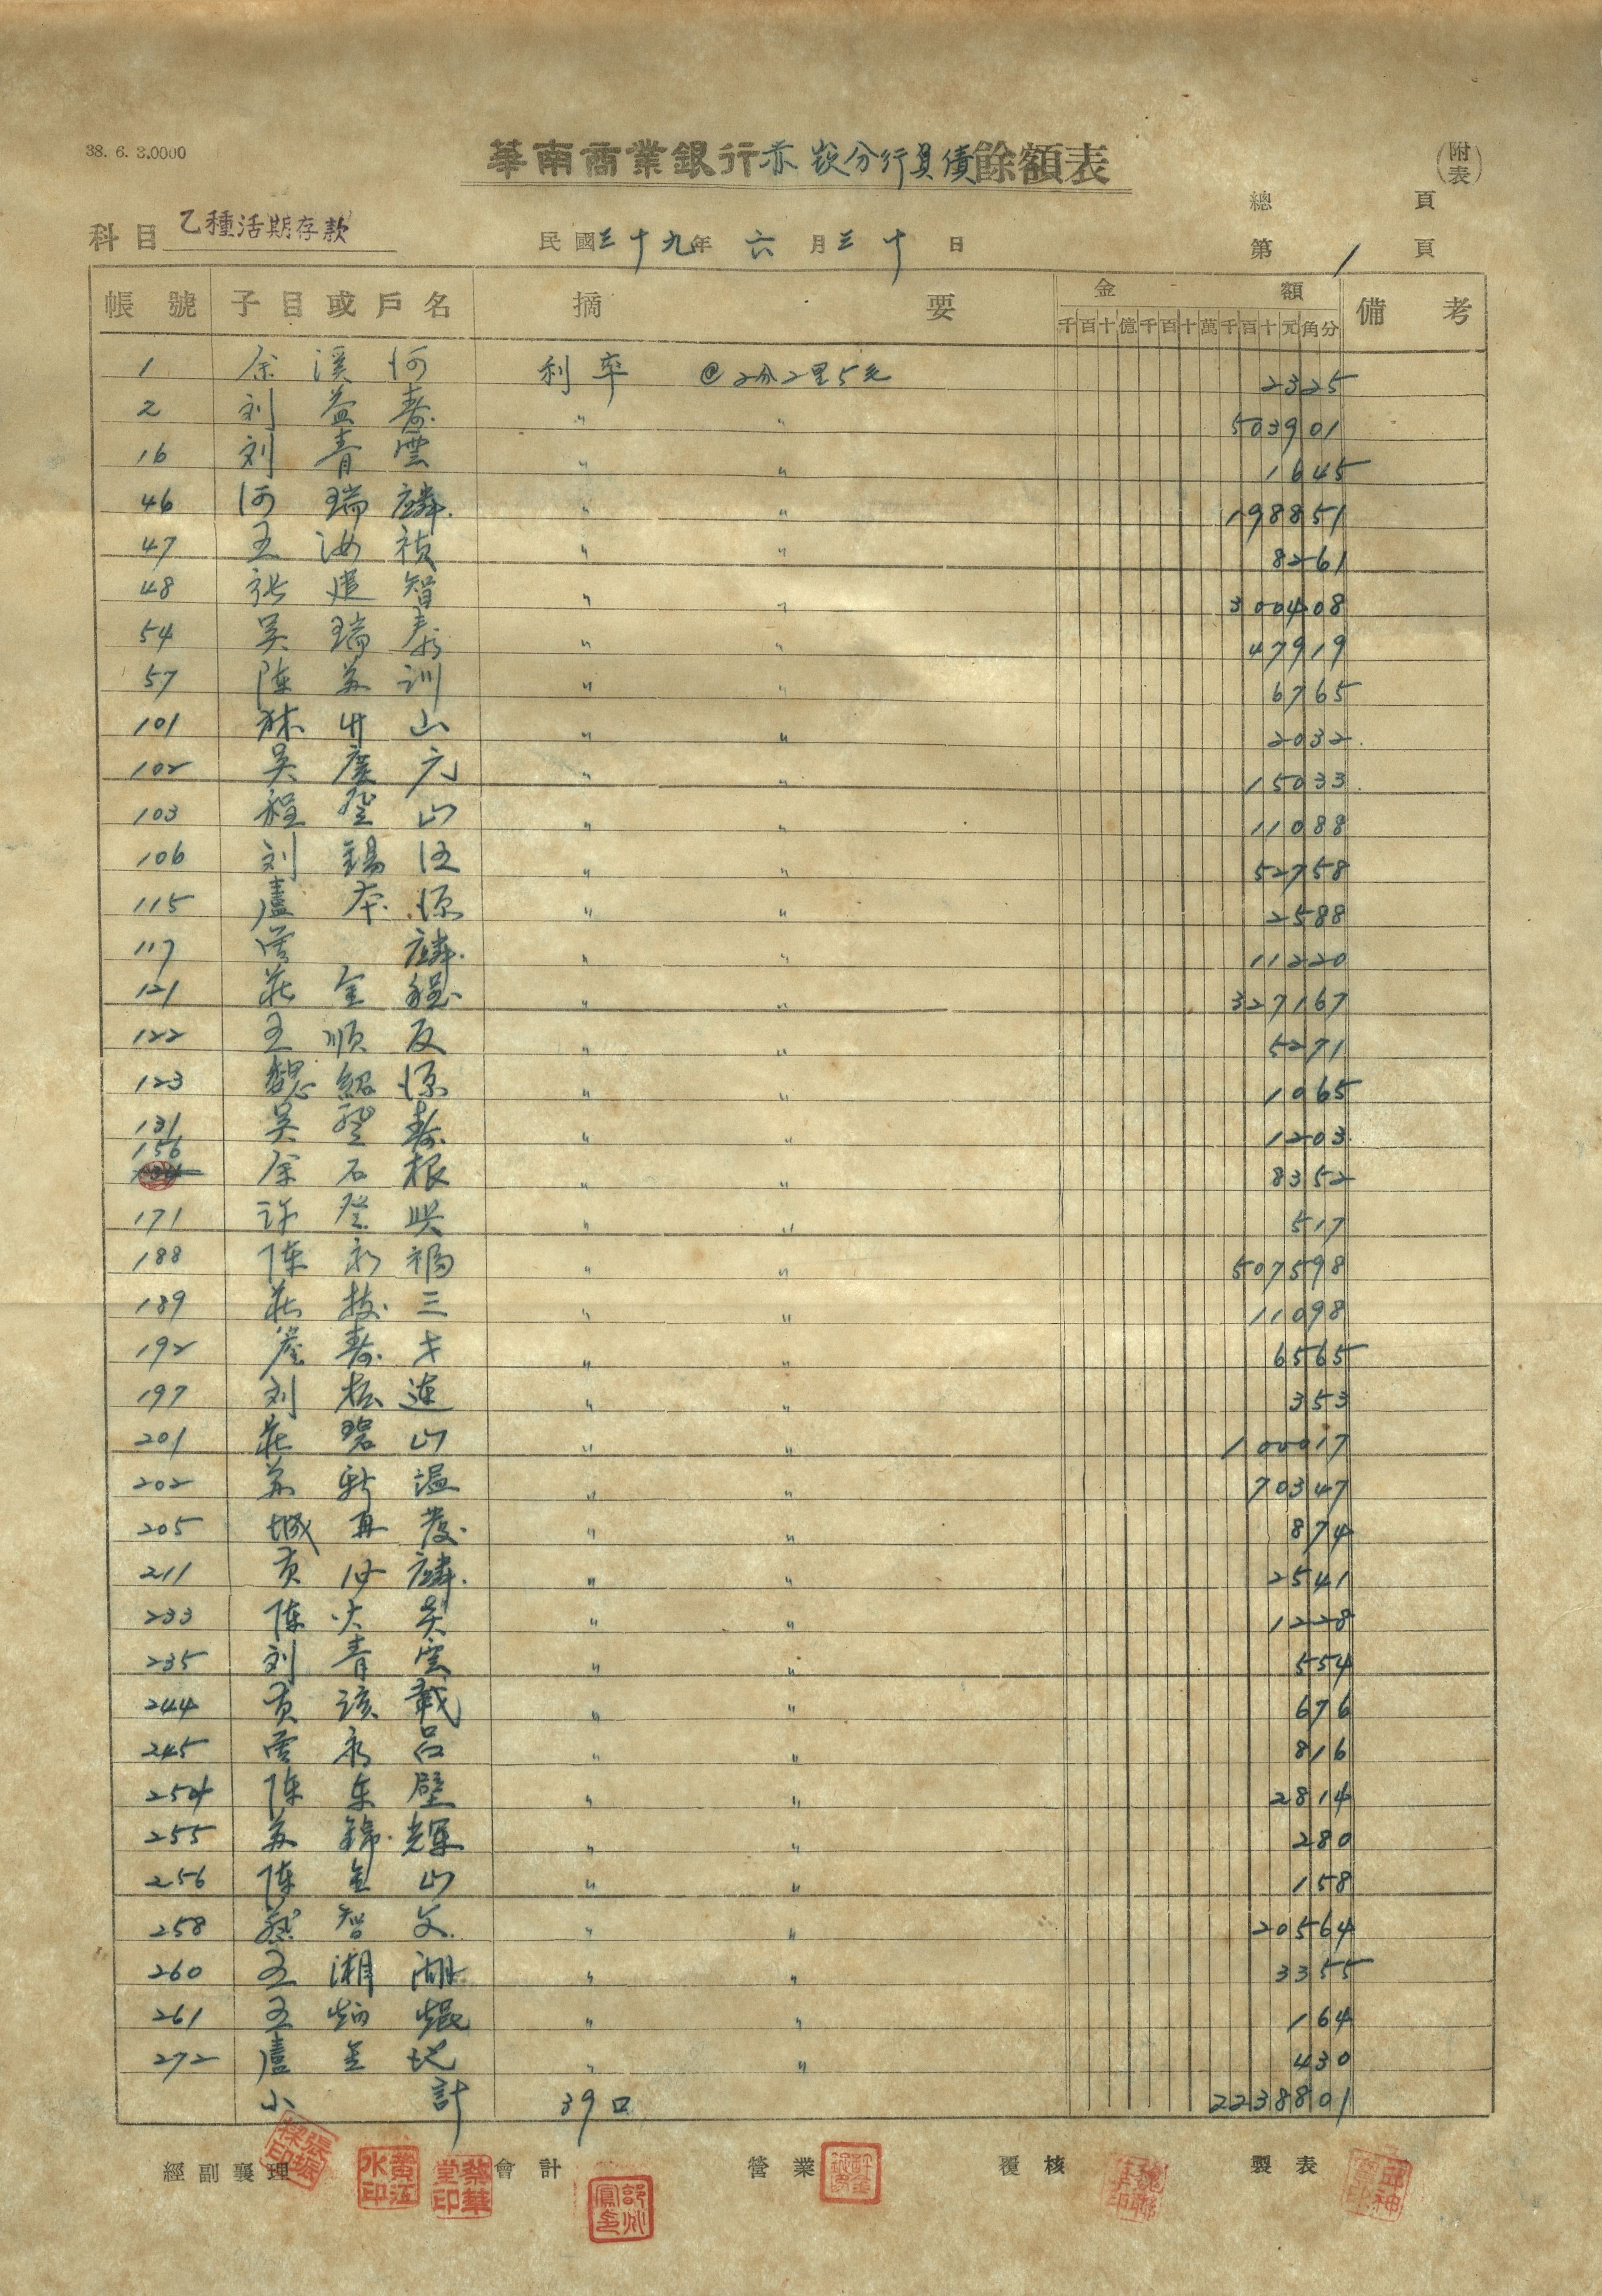 38. 6. 3.0000
華南商業銀行赤崁分行負債餘額表
(附表)
總 頁
科目 乙種活期存款 民國三十九年 六 月三十 日 第 1 頁
帳號 子目或戶名 摘 要 金額 備考
千百十億千百十萬千百十元角分
1 余溪河 利率 @2分2里5毛 2325
2 刘益壽 〃 〃 503901
16 刘青雲 〃 〃 1645
46 何瑞麟 〃 〃 198851
47 王汝禎 〃 〃 8261
48 張進智 〃 〃 300408
54 吳瑞泰 〃 〃 47919
57 陳英訓 〃 〃 6765
101 林竹山 〃 〃 2032
102 吳慶六 〃 〃 15033
103 程登山 〃 〃 11088
106 刘錫 〃 〃 52758
115 盧本源 〃 〃 2588
117 麟 〃 〃 11220
121 莊金 〃 〃 327167
122 王順 〃 〃 5271
123 魏紹源 〃 〃 1065
131 吳登壽 〃 〃 1203
156 余石根 〃 〃 8352
171 許登興 〃 〃 517
188 陳永福 〃 〃 507598
189 莊枝三 〃 〃 11098
192 詹壽才 〃 〃 6565
197 刘松連 〃 〃 353
201 莊碧山 〃 〃 100017
202 新温 〃 〃 70347
205 再發 〃 〃 874
211 麟 〃 〃 2541
233 陳火吳 〃 〃 1228
235 刘青雲 〃 〃 554
244 該載 〃 〃 676
245 永呂 〃 〃 816
254 陳東壁 〃 〃 2814
255 錦輝 〃 〃 280
256 陳金山 〃 〃 158
258 蔡智文 〃 〃 20564
260 王湘湖 〃 〃 3355
261 王炳焜 〃 〃 164
272 盧金地 〃 〃 430
小計 39口 2238801
經副襄理 黃江水印 蔡華堂印 會計 營業 覆核 製表